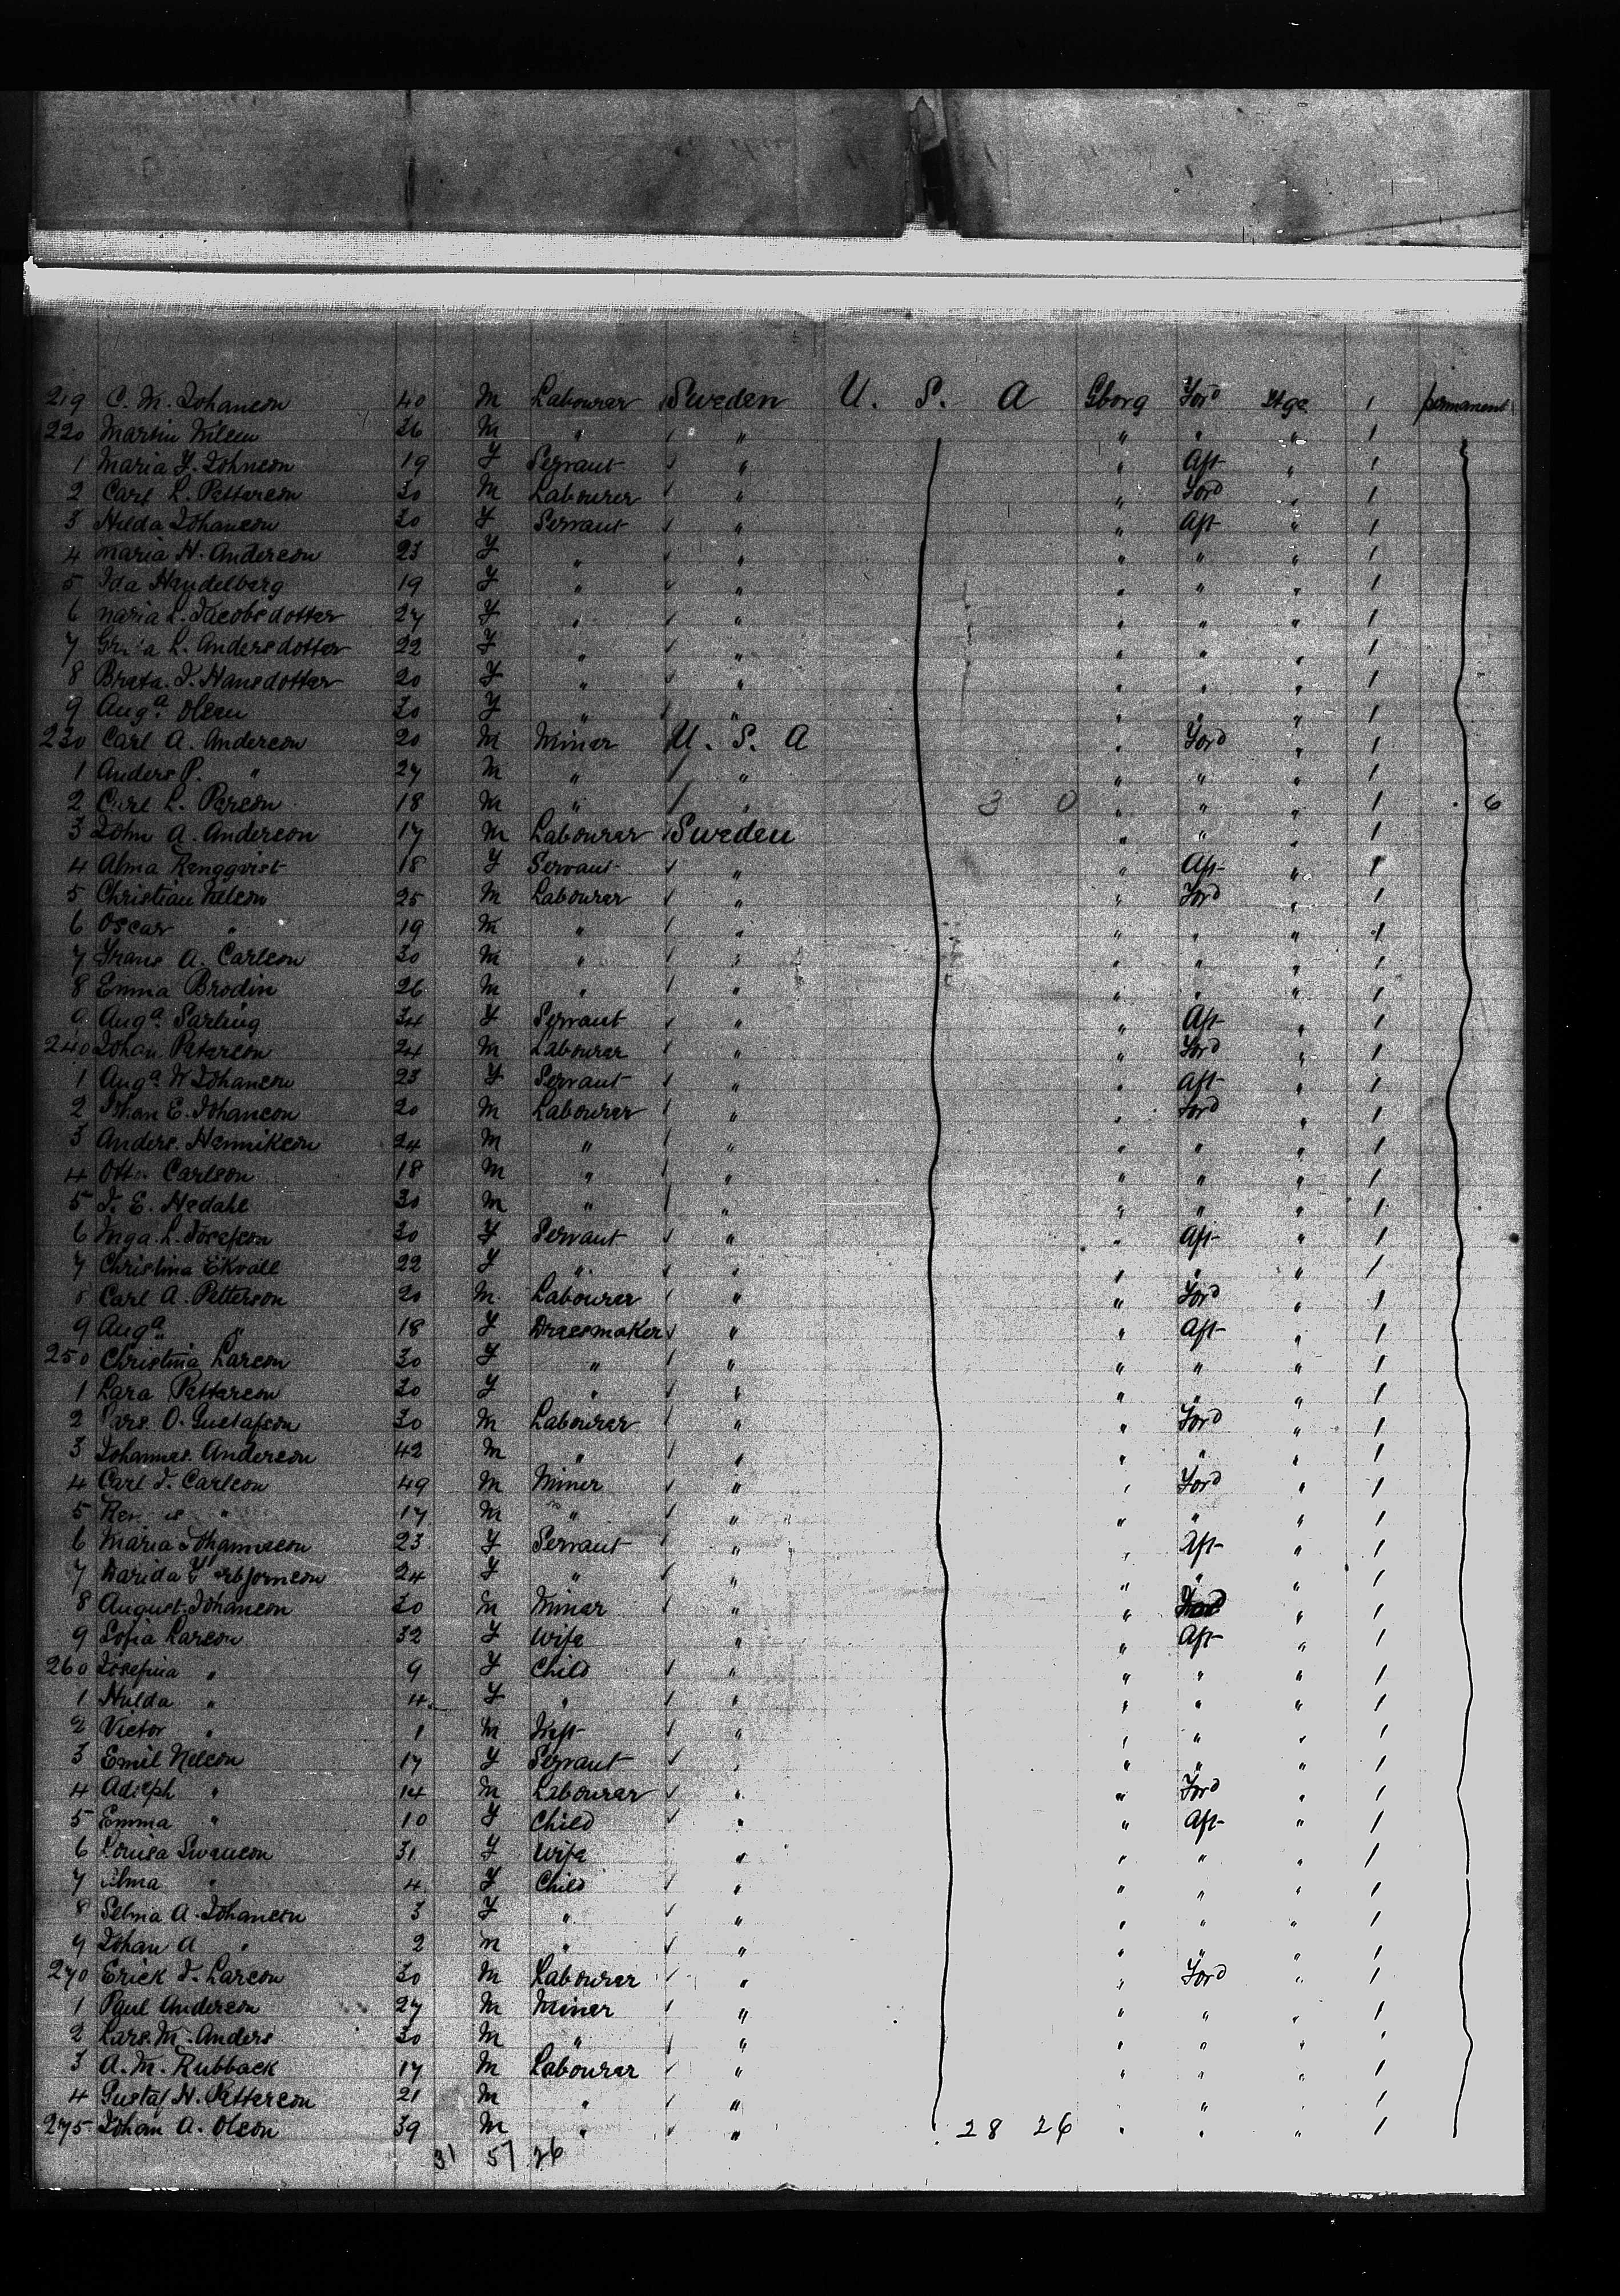 219 C. M. Johanson 40 M Labourer Sweden U. S. A Gborg Ford Stge 1 permanent
220 Martin Nilsen 26 M " " " " " 1
1 Maria F. Johnson 19 F Servant " " Aft " 1
2 Carl L. Petterson 30 M Labourer " " Ford " 1
3 Hulda Johanson 20 F Servant " " Aft " 1
4 Maria H. Anderson 23 F " " " " " 1
5 Ida Handelberg 19 F " " " " " 1
6 Maria L. Jacobsdotter 27 F " " " " " 1
7 L. Andersdotter 22 F " " " " " 1
8 Breta J. Hansdotter 20 F " " " " " 1
9 Auga. Olsen 30 F " " " " " 1
230 Carl A. Anderson 20 M Miner U. S. A " Ford " 1
1 Anders P. " 27 M " " " " " 1
2 Carl L. Person 18 M " " 3 0 " " " 1 6
3 John A. Anderson 17 M Labourer Sweden " " " 1
4 Alma Rengqvist 18 F Servant " " Aft " 1
5 Christian Nelson 25 M Labourer " " Ford " 1
6 Oscar " 19 M " " " " " 1
7 Frans A. Carlson 30 M " " " " " 1
8 Emma Brodin 26 M " " " " " 1
9 Auga. Sarling 34 F Servant " " Aft " 1
240 Johan Peterson 24 M Labourer " " Ford " 1
1 Auga. W Johanson 23 F Servant " " Aft " 1
2 Johan E. Johanson 20 M Labourer " " Ford " 1
3 Anders. Hennikson 24 M " " " " " 1
4 Otto Carlson 18 M " " " " " 1
5 J. E. Hedahl 30 M " " " " " 1
6 Inga. L. Josefson 30 F Servant " " Aft " 1
7 Christina Ekvall 22 F " " " " " 1
8 Carl A. Petterson 20 M Labourer " " Ford " 1
9 Auga. " 18 F Dressmaker " " Aft " 1
250 Christina Larson 30 F " " " " " 1
1 Lara Petterson 30 F " " " " " 1
2 Lars. O. Gustafson 30 M Labourer " " Ford " 1
3 Johannes Anderson 42 M " " " " " 1
4 Carl J. Carlson 49 M Miner " " Ford " 1
5 " 17 M " " " " " 1
6 Maria Johanneson 23 F Servant " " Aft " 1
7 24 F " " " " " 1
8 August Johanson 30 M Miner " " " 1
9 Sofia Larson 32 F Wife " " Aft " 1
260 Josefina " 9 F Child " " " " 1
1 Hulda " 4 F " " " " " 1
2 Victor " 1 M Inft " " " " 1
3 Emil Nelson 17 F Servant " " " " 1
4 Adolph " 14 M Labourer " " Ford " 1
5 Emma " 10 F Child " " Aft " 1
6 Louisa Swanson 31 F Wife " " " " 1
7 Alma " 4 F Child " " " " 1
8 Selma A. Johanson 3 F " " " " " 1
9 Johan A " 2 M " " " " " 1
270 Erick J. Larson 30 M Labourer " " Ford " 1
1 Paul Anderson 27 M Miner " " " " 1
2 Lars. M. Anders 30 M " " " " " 1
3 A. M. Rubback 17 M Labourer " " " " 1
4 Gustaf H. Petterson 21 M " " " " " 1
275 Johan A. Olson 39 M " " 28 26 " " " 1
31 57 26